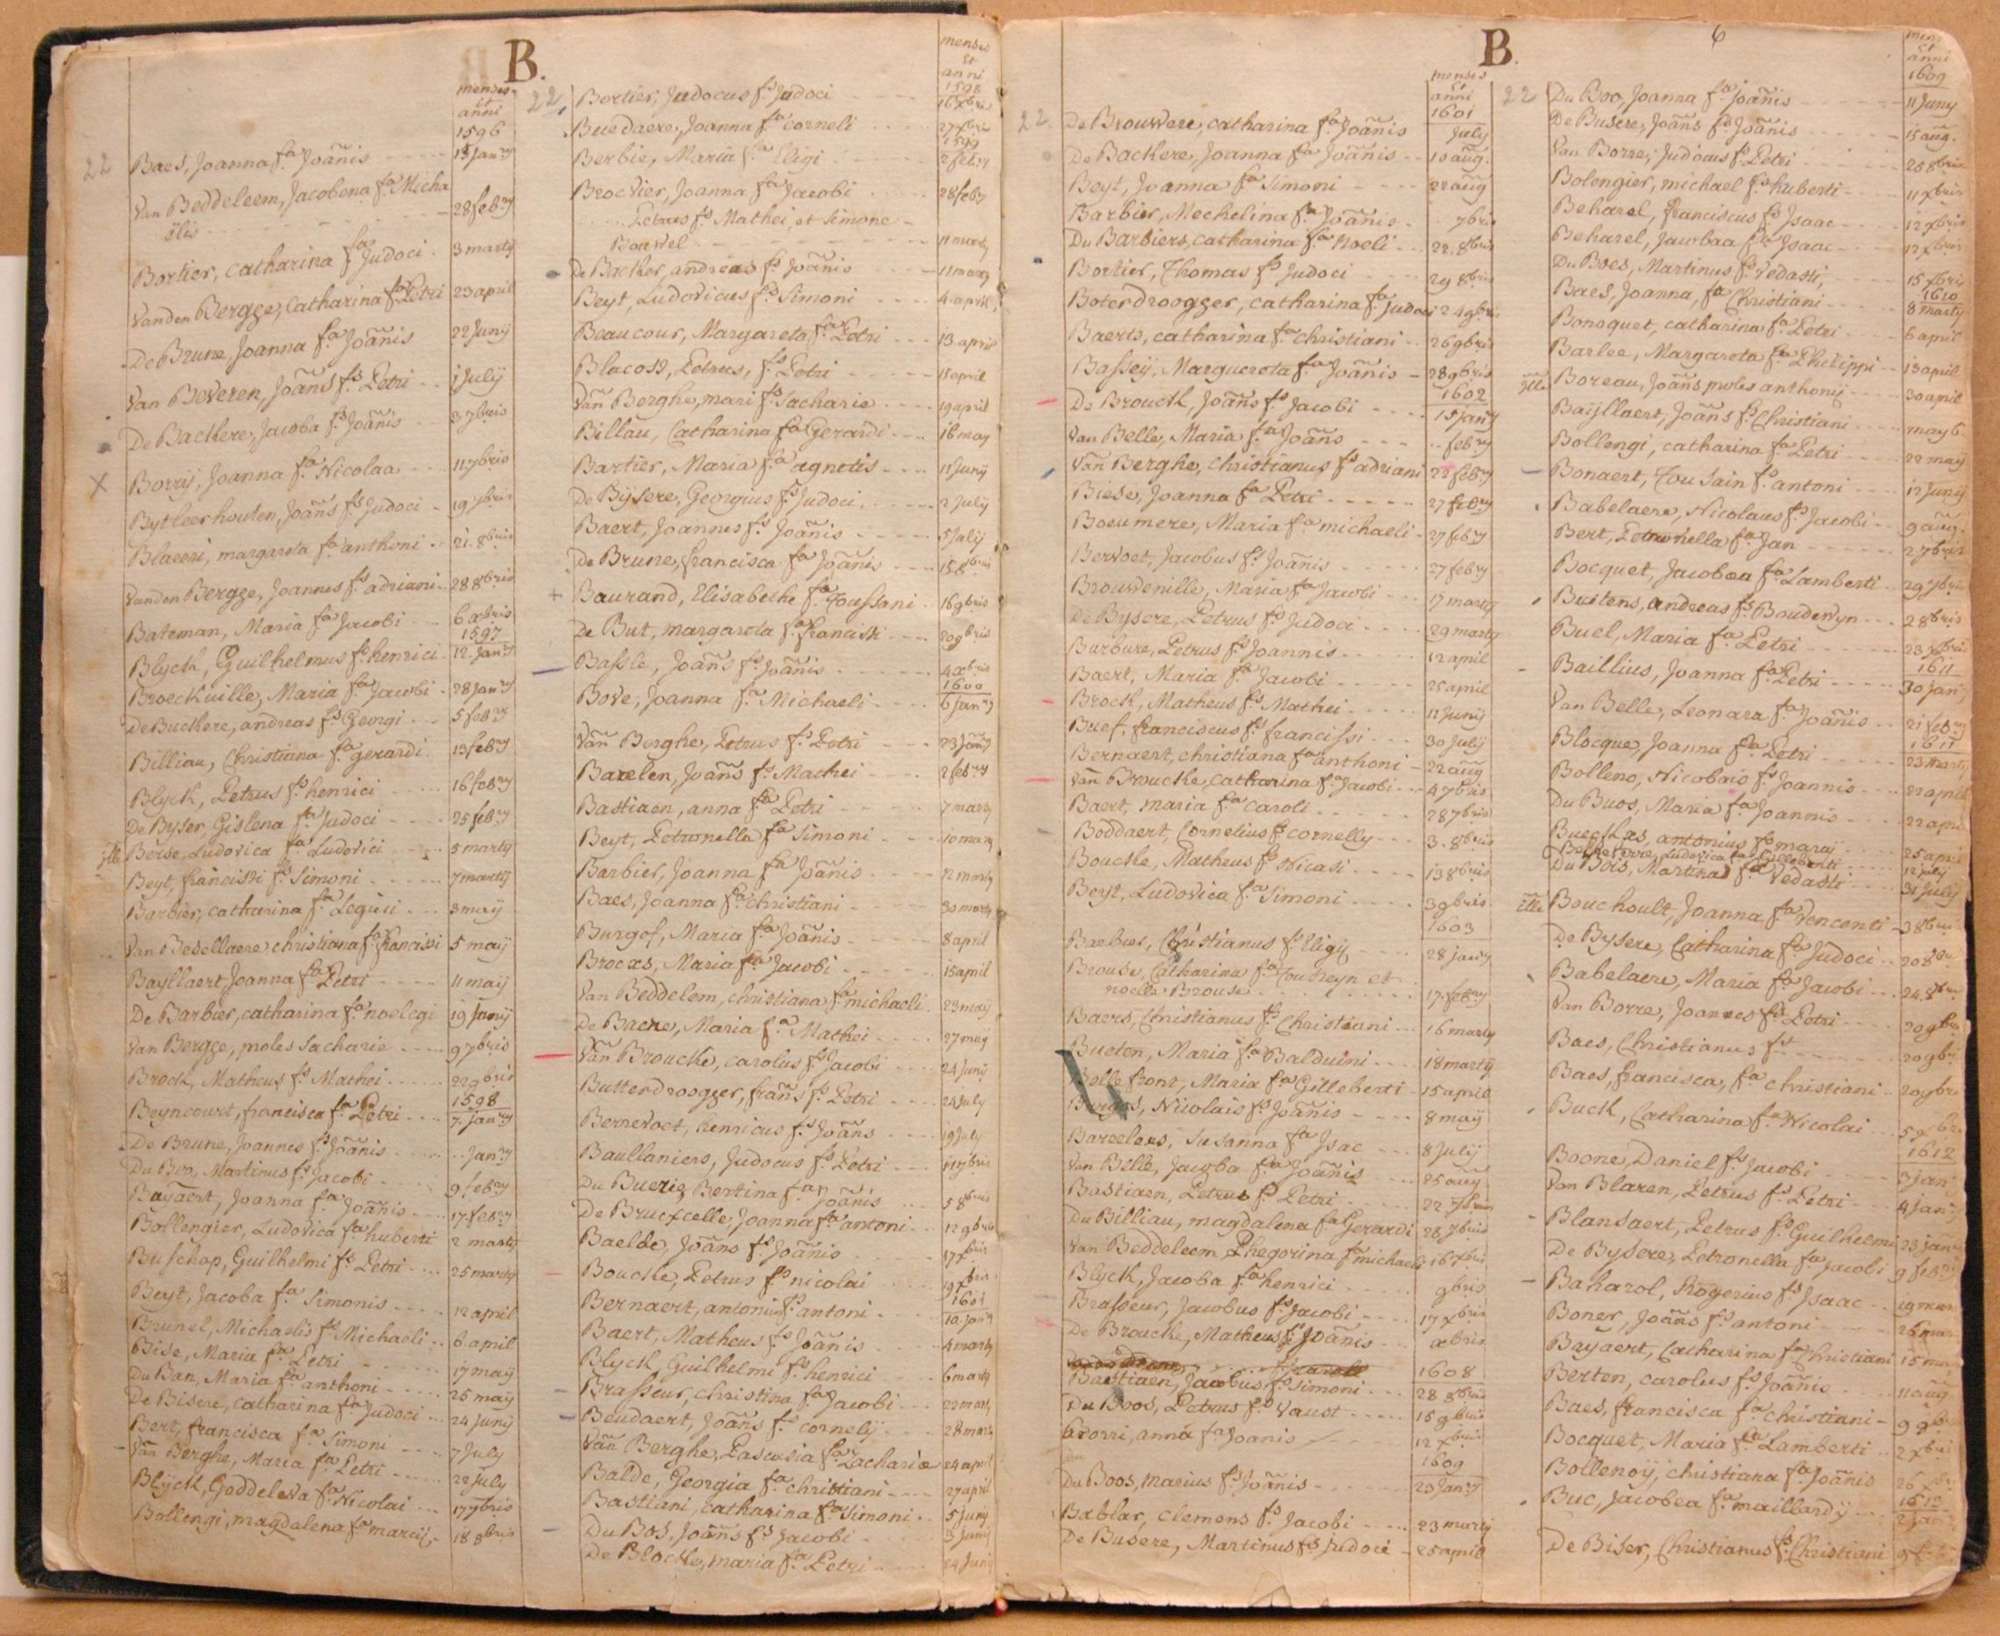 B.
menses
et
anni
1596
22 Baes, Joanna fa Joãnis 15 Janry
Van Beddeleem, Jacobena fa Micha
ëlis 28 febry
Bortier, Catharina fa Judoci 3 martÿ
Vanden Bergge, Catharina fa Petri 23 april
De Brune, Joanna fa Joãnis 22 Junÿ
Van Beveren, Joãns fs Petri 1 Julÿ
De Backere, Jacoba fs Joãnis 3 7bris
X Borrÿ, Joanna fa Nicolaa 11 7bris
Bytleerhouten, Joãns fs Judoci 19 7bris
Blaevri, margareta fa anthoni 21 8bris
Vanden Bergge, Joannes fs adriani 28 8bris
Bateman, Maria fa Jacobi 6 xbris
1597
Blyck, Guilhelmus fs henrici 12 Janry
Broeckuille, Maria fa Jacobi 28 Janry
De Buckere, andreas fs Georgi 5 febry
Billiau, Christiana fa gerardi 13 febry
Blyck, Petrus fs henrici 16 febry
De Byser, Gislena fa Judoci 25 febry
Beise, Ludovica fa Ludovici 5 martÿ
Beyt, francisci fs Simoni 7 martÿ
Barbier, catharina fa Legieri 3 maÿ
Van Bedellaere, christiana fa francissi 5 maÿ
Bayllaert, Joanna fa Petri 11 maÿ
De Barbier, catharina fa noelegi 19 Junÿ
Van Bergge, moles Sacharie 9 7bris
Brock, Matheus fs Mathei 22 9bris
1598
Beyncourt, francisca fa Petri 7 Janry
De Brune, Joannes fs Joãnis Janry
Du Boo, Martinus fs Jacobi 9 febry
Bayaert, Joanna fa Joãnis 17 febry
Bollengier, Ludovica fa huberti 2 martÿ
Buschap, Guilhelmi fs Petri 25 martÿ
Beyt, Jacoba fa Simonis 12 april
Brunel, Michaelis fs Michaeli 6 april
Bise, Maria fa Petri 17 maÿ
Du Ban, Maria fa anthoni 25 maÿ
De Bisere, catharina fa Judoci 24 Junÿ
Bert, francisca fa Simoni 7 July
Van Berghe, Maria fa Petri 22 July
Blÿck, Goddeleva fa Nicolai 17 7bris
Bollengi, magdalena fa marcÿ 18 8bris
menses
et
anni
1598
22 Bortier, Judocus fs Judoci 16 xbris
Buedaere, Joanna fa Corneli 27 xbris
1599
Berbie, Maria fa Eligi 2 febry
Brocvier, Joanna fa Jacobi 28 febry
Petrus fs Mathei, et Simone
Bouvel 11 martÿ
De Backer, andreas fs Joãnis 11 martÿ
Beyt, Ludovicus fs Simoni 4 april
Beaucour, Margareta fa Petri 13 april
Blacoss, Petrus, fs Petri 15 april
Van Berghe, mari fs Sacharie 19 april
Billau, Catharina fa Gerardi 16 may
Bartier, Maria fa agnetis 11 Junÿ
De Bÿsere, Georgius fs Judoci 2 Julÿ
Baert, Joannes fs Joãnis 5 Julÿ
De Brune, francisca fa Joãnis 15 8bris
Baurand, Elisabethe fa Toussani 16 9bris
De But, margareta fa francisti 20 9bris
Bassle, Joãns fs Joãnis 4 xbris
1600
Bove, Joanna fa Michaeli 6 Janry
Van Berghe, Petrus fs Petri 23 Janry
Barelen, Joãns fs Mathei 2 febry
Bastiaen, anna fa Petri 7 martÿ
Beyt, Petronella fa Simoni 10 martÿ
Barbier, Joanna fa Joãnis 12 martÿ
Baes, Joanna fa christiani 30 martÿ
Burgof, Maria fa Joãnis 8 april
Brocas, Maria fa Jacobi 15 april
Van Beddelem, christiana fa michaeli 23 maÿ
De Bacre, Maria fa Mathei 27 may
Van Broucke, carolus fs Jacobi 24 Junÿ
Butterdroogger, frans fs Petri 24 July
Bernevoet, henricus fs Joãns 19 July
Baullaniers, Judocus fs Petri 11 7bris
Du Buerie, Bertina fa Joãnis 5 8bris
De Bruexcelle, Joanna fa antoni 12 9bris
Baelde, Joãns fs Joãnis 17 xbris
Boucke, Petrus fs nicolai 19 xbris
1601
Bernaert, antonius fs antoni 10 Janry
Baert, Matheus fs Joãnis 4 martÿ
Blyck, Guilhelmi fs henrici 6 martÿ
Brasseur, christina fa Jacobi 22 martÿ
Beudaert, Joãns fs cornelÿ 28 martÿ
Van Berghe, Pascasia fa Zachariæ 24 april
Balde, Georgia fa christiani 27 april
Bastiani, catharina fa Simoni 5 Junÿ
Du Bos, Joãns fs Jacobi 3 Junÿ
De Blocke, maria fa Petri 24 Junÿ
6
B.
menses
et
anni
1601
22 De Brouwere, catharina fa Joãnis July
De Backere, Joanna fa Joãnis 10 aug.
Beyt, Joanna fa Simoni 22 aug
Barbier, Mechelina fa Joãnis 7bris
Du Barbiers, catharina fa Noeli 22 8bris
Bortier, Thomas fs Judoci 29 8bris
Boterdroogger, catharina fa Judoci 24 9bris
Baerts, catharina fa christiani 26 9bris
Bassey, Marguerota fa Joãnis 28 9bris
1602
De Brouck, Joãns fs Jacobi 15 Janry
Van Belle, Maria fa Joãns febry
Van Berghe, christianus fs adriani 22 febry
Biese, Joanna fa Petri 27 febry
Boeumere, Maria fa michaeli 27 febry
Bervoet, Jacobus fs Joãnis 27 febry
Brouwenille, Maria fa Jacobi 17 martÿ
De Bysere, Petrus fs Judoci 29 martÿ
Burbure, Petrus fs Joannis 12 april
Baert, Maria fa Jacobi 25 april
Brock, Matheus fs Mathei 11 Junÿ
Buef, franciscus fs francissi 30 Julÿ
Bernaert, christiana fa anthoni 22 aug
Van Broucke, catharina fa Jacobi 4 7bris
Baert, maria fa caroli 28 7bris
Boddaert, Cornelius fs cornelly 3 8bris
Boucke, Matheus fs Nicasi 13 8bris
Beyt, Ludovica fa Simoni 3 9bris
1603
Baelues, Christianus fs Eligÿ 28 janry
Brouse, Catharina fa Touseyn et
noella Brouse 17 febry
Baers, Christianus fs Christiani 16 martÿ
Bueten, Maria fa Balduini 18 martÿ
Belle front, Maria fa Gilleberti 15 april
Burges, Nicolais fs Joãnis 8 maÿ
Barelees, Susanna fa Isac 8 Julÿ
Van Belle, Jacoba fa Joãnis 25 aug
Bastiaen, Petrus fs Petri 22 7bris
Du Billiau, magdalena fa Gerardi 28 7bris
Van Beddeleem, Phegorina fa michaeli 16 7bris
Blyck, Jacoba fa henrici 9bris
Brasseur, Jacobus fs Jacobi 17 xbris
De Broucke, Matheus fs Joãnis xbris
1608
Bastiaen, Jacobus fs Simoni 28 8bris
Du Boos, Petrus fs Vaust 15 9bris
Borri, anna fa Joanis 12 xbris
1609
Du Boos, Marius fs Joãnis 23 Janry
Bablar, clemens fs Jacobi 23 martÿ
De Busere, Martinus fs Judoci 25 april
mens
et
anni
1609
22 Du Boo, Joanna fa Joãnis 11 Juny
De Busere, Joãns fs Joãnis 15 aug.
Van Borre, Judocus fs Petri 25 8bris
Bolengier, michael fs huberti 11 xbris
Beharel, franciscus fs Isaac 12 xbris
Beharel, Jacobaa fa Isaac 12 xbris
Du Boes, Martinus fs Vedasti, 15 xbris
1610
Baes, Joanna, fa Christiani 8 martÿ
Bonoquet, catharina fa Petri 6 april
Barlee, Margareta fa Philippi 13 april
Boreau, Joãns moles anthonÿ 30 april
Baÿllaert, Joãns fs Christiani may 6
Bollengi, catharina fa Petri 22 maÿ
Bonaert, Tousain fs antoni 12 Junÿ
Babelaere, Nicolaus fs Jacobi 9 aug.
Bert, Petronella fa Jan 2 7bris
Bocquet, Jacobæa fa Lamberti 29 7bris
Bustens, andreas fs Boudewyn 28 bris
Buel, Maria fa Petri 23 xbris
1611
Baillius, Joanna fa Petri 30 Jan
Van Belle, Leonara fa Joãnis 21 febry
1611
Blocque, Joanna fa Petri 23 martÿ
Bolleno, Nicobris fs Joannis 22 april
Du Buos, Maria fa Joannis 22 april
Bueckas, antonius fs maraÿ 25 april
Belleterre, Ludovica fa Gilleberti 12 July
Du Bois, Martina fa Vedasti 31 July
Bouchoult, Joanna fa Vencenti 3 8bris
De Bysere, Catharina fa Judoci 20 8br
Babelaere, Maria fa Jacobi 24 8bris
Van Borre, Joannes fs Petri 20 9bris
Baes, Christianus fs 20 9bris
Baes, francisca, fa christiani 20 9bris
Buck, Catharina fa Nicolai 5 xbris
1612
Boone, Daniel fs Jacobi 3 jan
Van Blaren, Petrus fs Petri 4 jan
Blansaert, Petrus fs Guilhelmi 23 jan
De Bysere, Petronella fa Jacobi 9 febry
Baharol, Rogerius fs Isaac 19 mar
Boner, Joãns fs antoni 26 mar
Bayaert, Catharina fa Christiani 15 mai
Berten, carolus fs Joãnis 11 aug
Baes, francisca fa christiani 9 9bris
Bocquet, Maria fa Lamberti 2 xbri
Bollenoÿ, christiana fa Joãnis 26 xbri
1613
Buc, Jacobea fa maillardÿ 2 jan
De Biser, Christianus fs Christiani 9 f